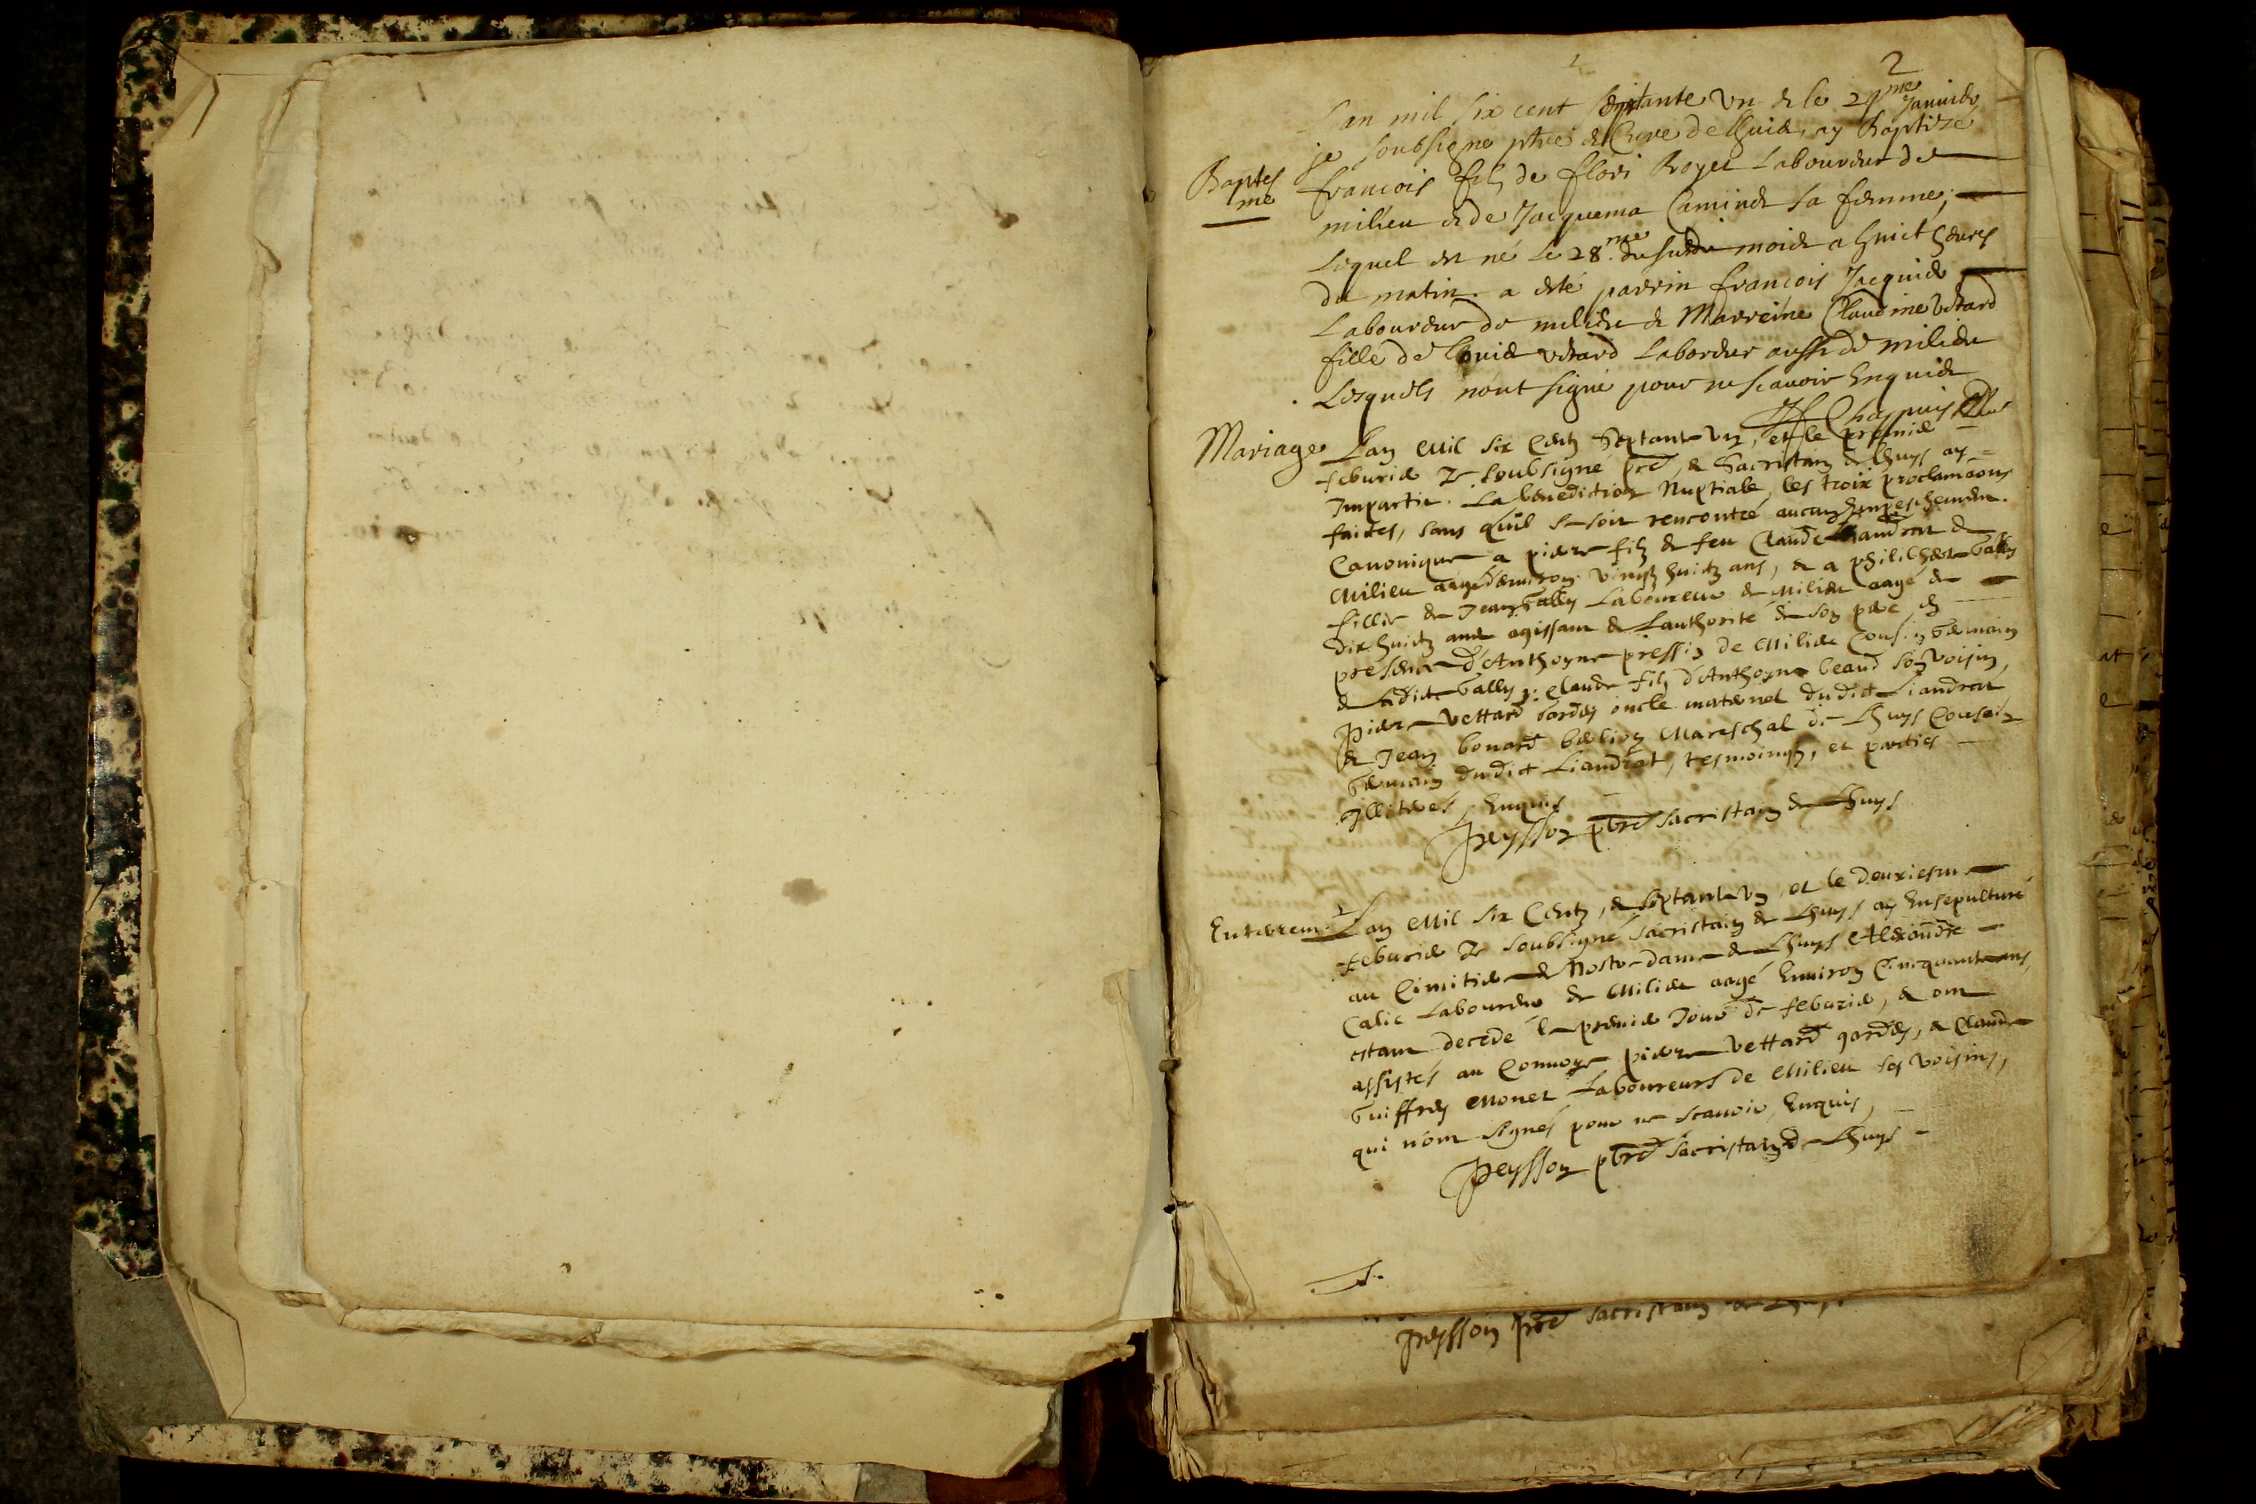 2
L'an mil six cent septante un & le 29me Januier
je soubsigne ptre & Cure de Lhuis, ay Baptize
Baptes
me
francois fils de flori Royet Laboureur de
milieu & de Jacquema Caminet sa femme,
Lequel est né le 28.me du susdt mois a huict heures
du matin. a esté parrin francois Jacquier
Laboureur de milieu & Marreine Claudine vetard
fille de Louis vetard Laboreur aussi de milieu
Lesquels n'ont signé pour ne scauoir Enquis
Chappuis
Mariage L'an Mil six Centz Septante vn, et le premier
feburier Je soubsigné pbre, & Sacristain de Lhuys ay
Impartie La benediction Nuptiale, les troix proclamaons
faictes, sans quil se soit rencontré aucung Empeschement
Canonique a pierre filz de feu Claude Liandrat de
Milieu aagé d'enuiron vingt huictz ans, & a philiberte Bally
fillie de Jean Bally Laboureur de Milieu aagé de
dix huictz ans agissant de Lauthorité de son pere, en
présence d'Anthoyne pressin de Milieu Cousin Germain
de Ladicte Bally, Claude filz d'Anthoyne beaud son voisin,
pierre Vettard oncle maternel dudict Liandrat
& Jean bonard Mareschal de Lhuys Cousin
Germain dudict Liandrat, tesmoings, et parties
Illitérés Enquis
Peysson pbre sacristain de Lhuys
Enterrem.t L'an Mil six Centz, & Septante vn, et le deuxiesme
feburier Je soubsigné Sacristain de Lhuys ay Ensepulturé
au Cimitiere de Nostre dame de Lhuys Alexandre
Calie Laboureur de Milieu aagé Enuiron Cincquante ans,
estant decedé le premier Jour de feburier, & ont
assistés au Conuoye pierre Vettard, & Claude
Guiffrey Monet Laboureurs de Milieu ses voisins,
qui n'ont signés pour ne scauoir, Enquis,
Peysson pbre sacristain de Lhuys
Peysson pbre sacristain de Lhuys